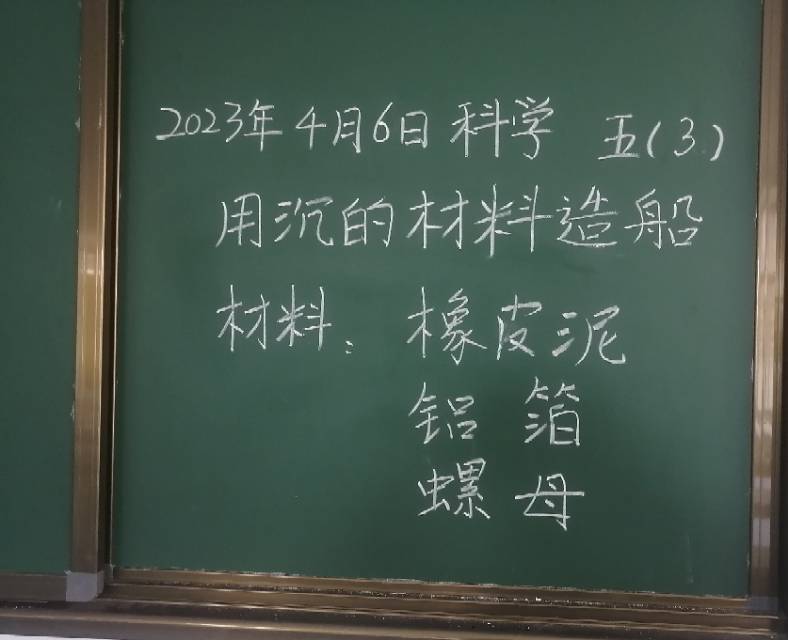 2023年4月6日 科学 五(3)
用沉的材料造船
材料：橡皮泥
铝箔
螺母